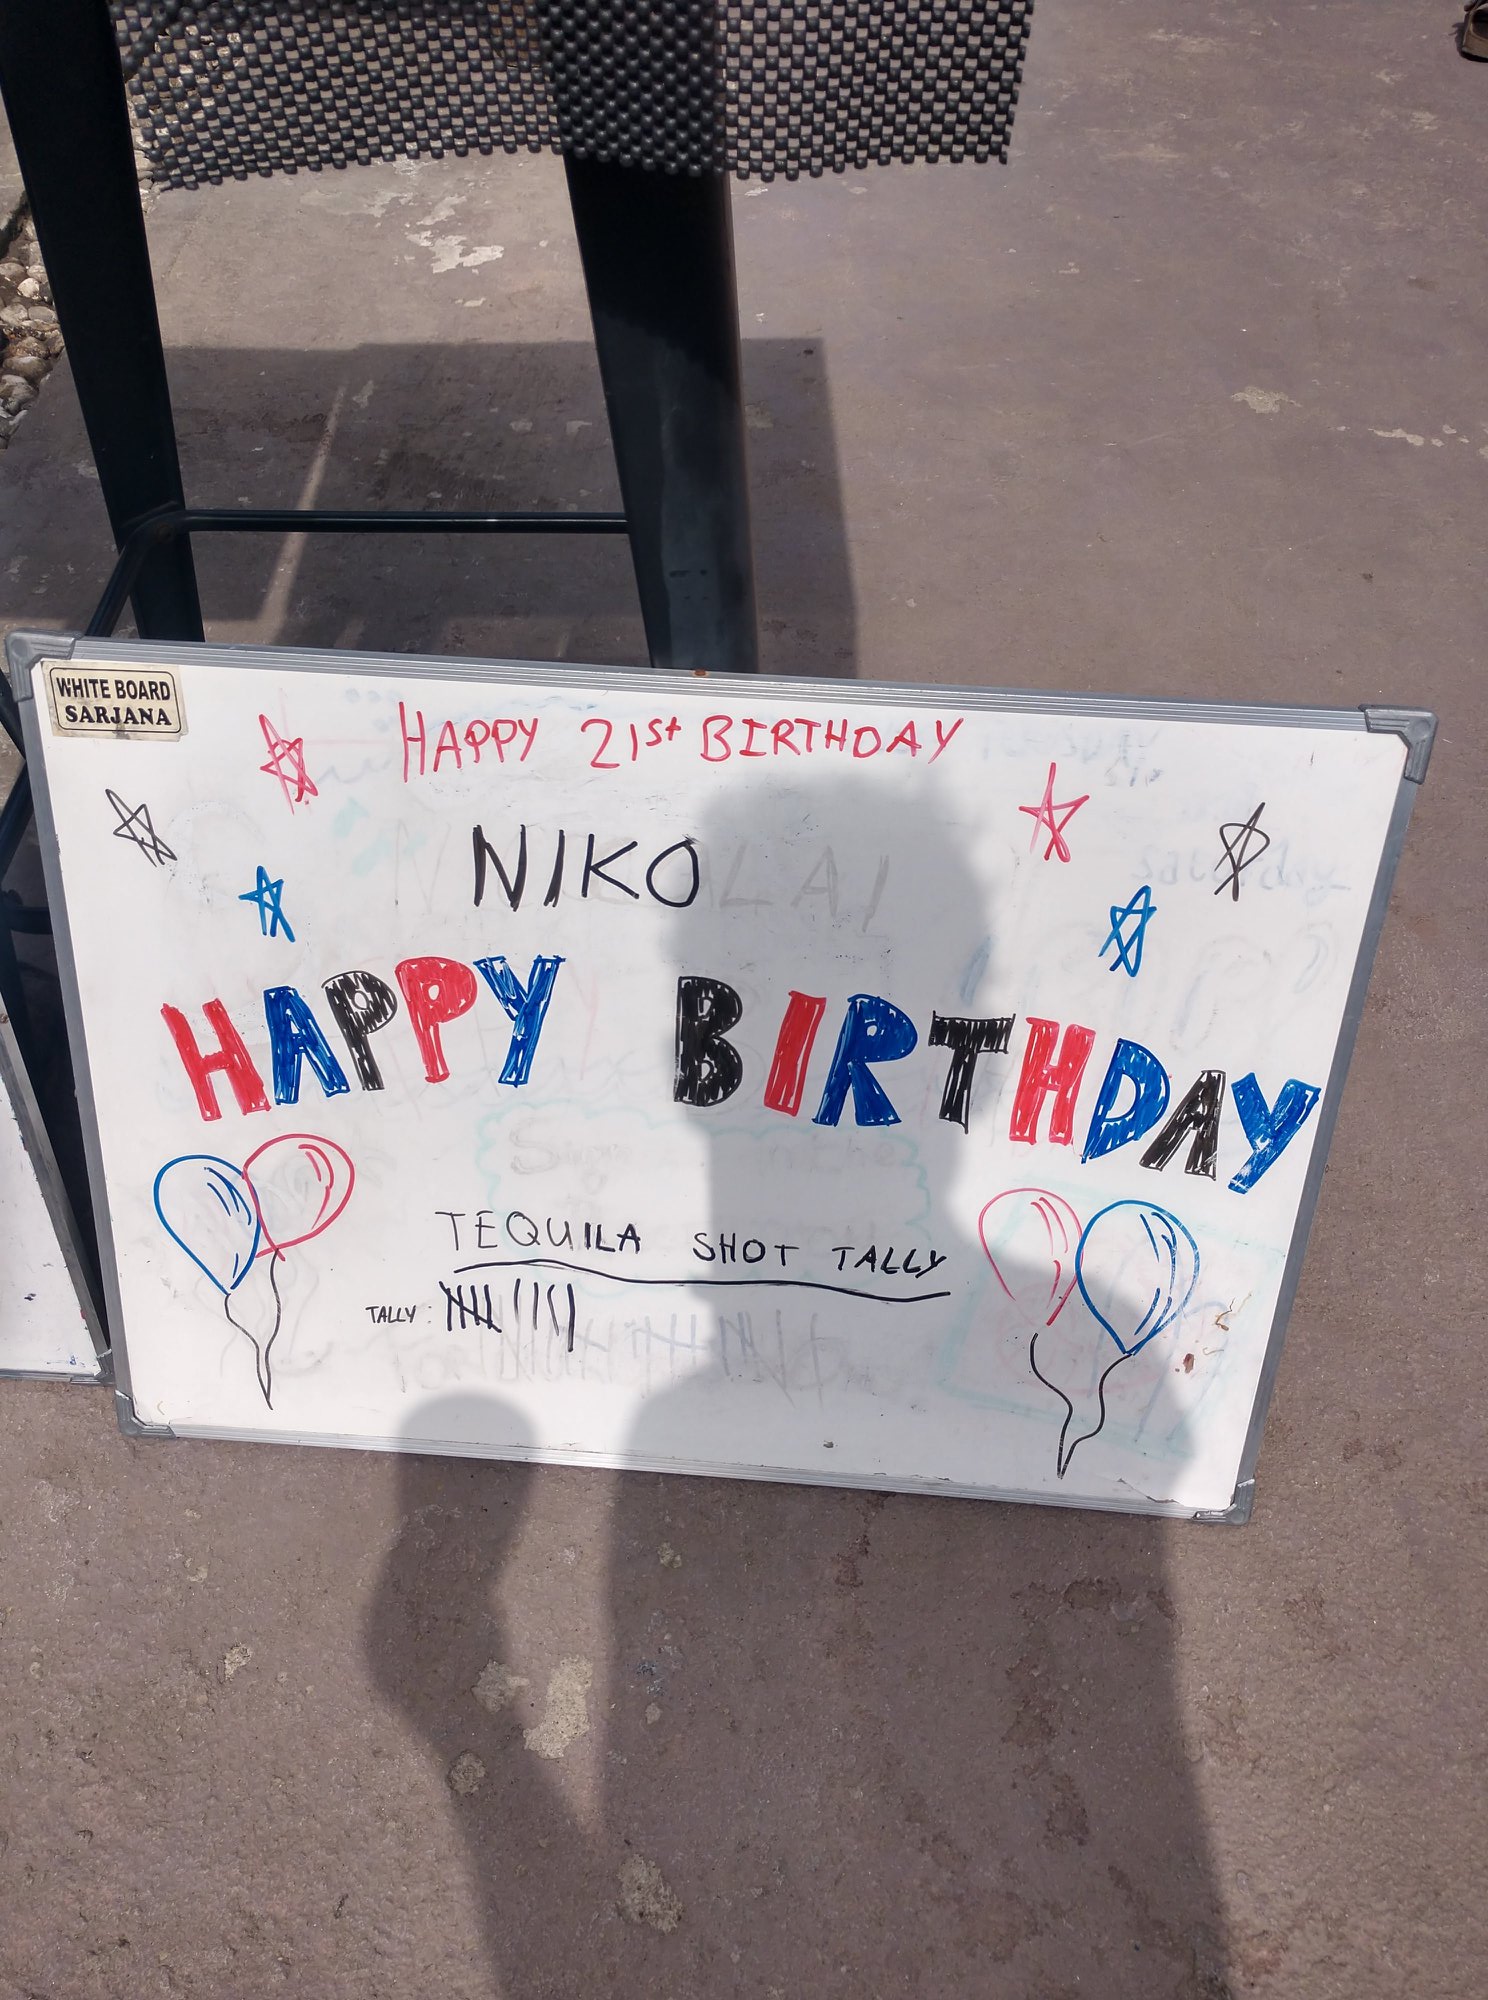 WHITE BOARD
SARJANA
HAPPY 21st BIRTHDAY
NIKO
HAPPY BIRTHDAY
TEQUILA SHOT TALLY
TALLY: